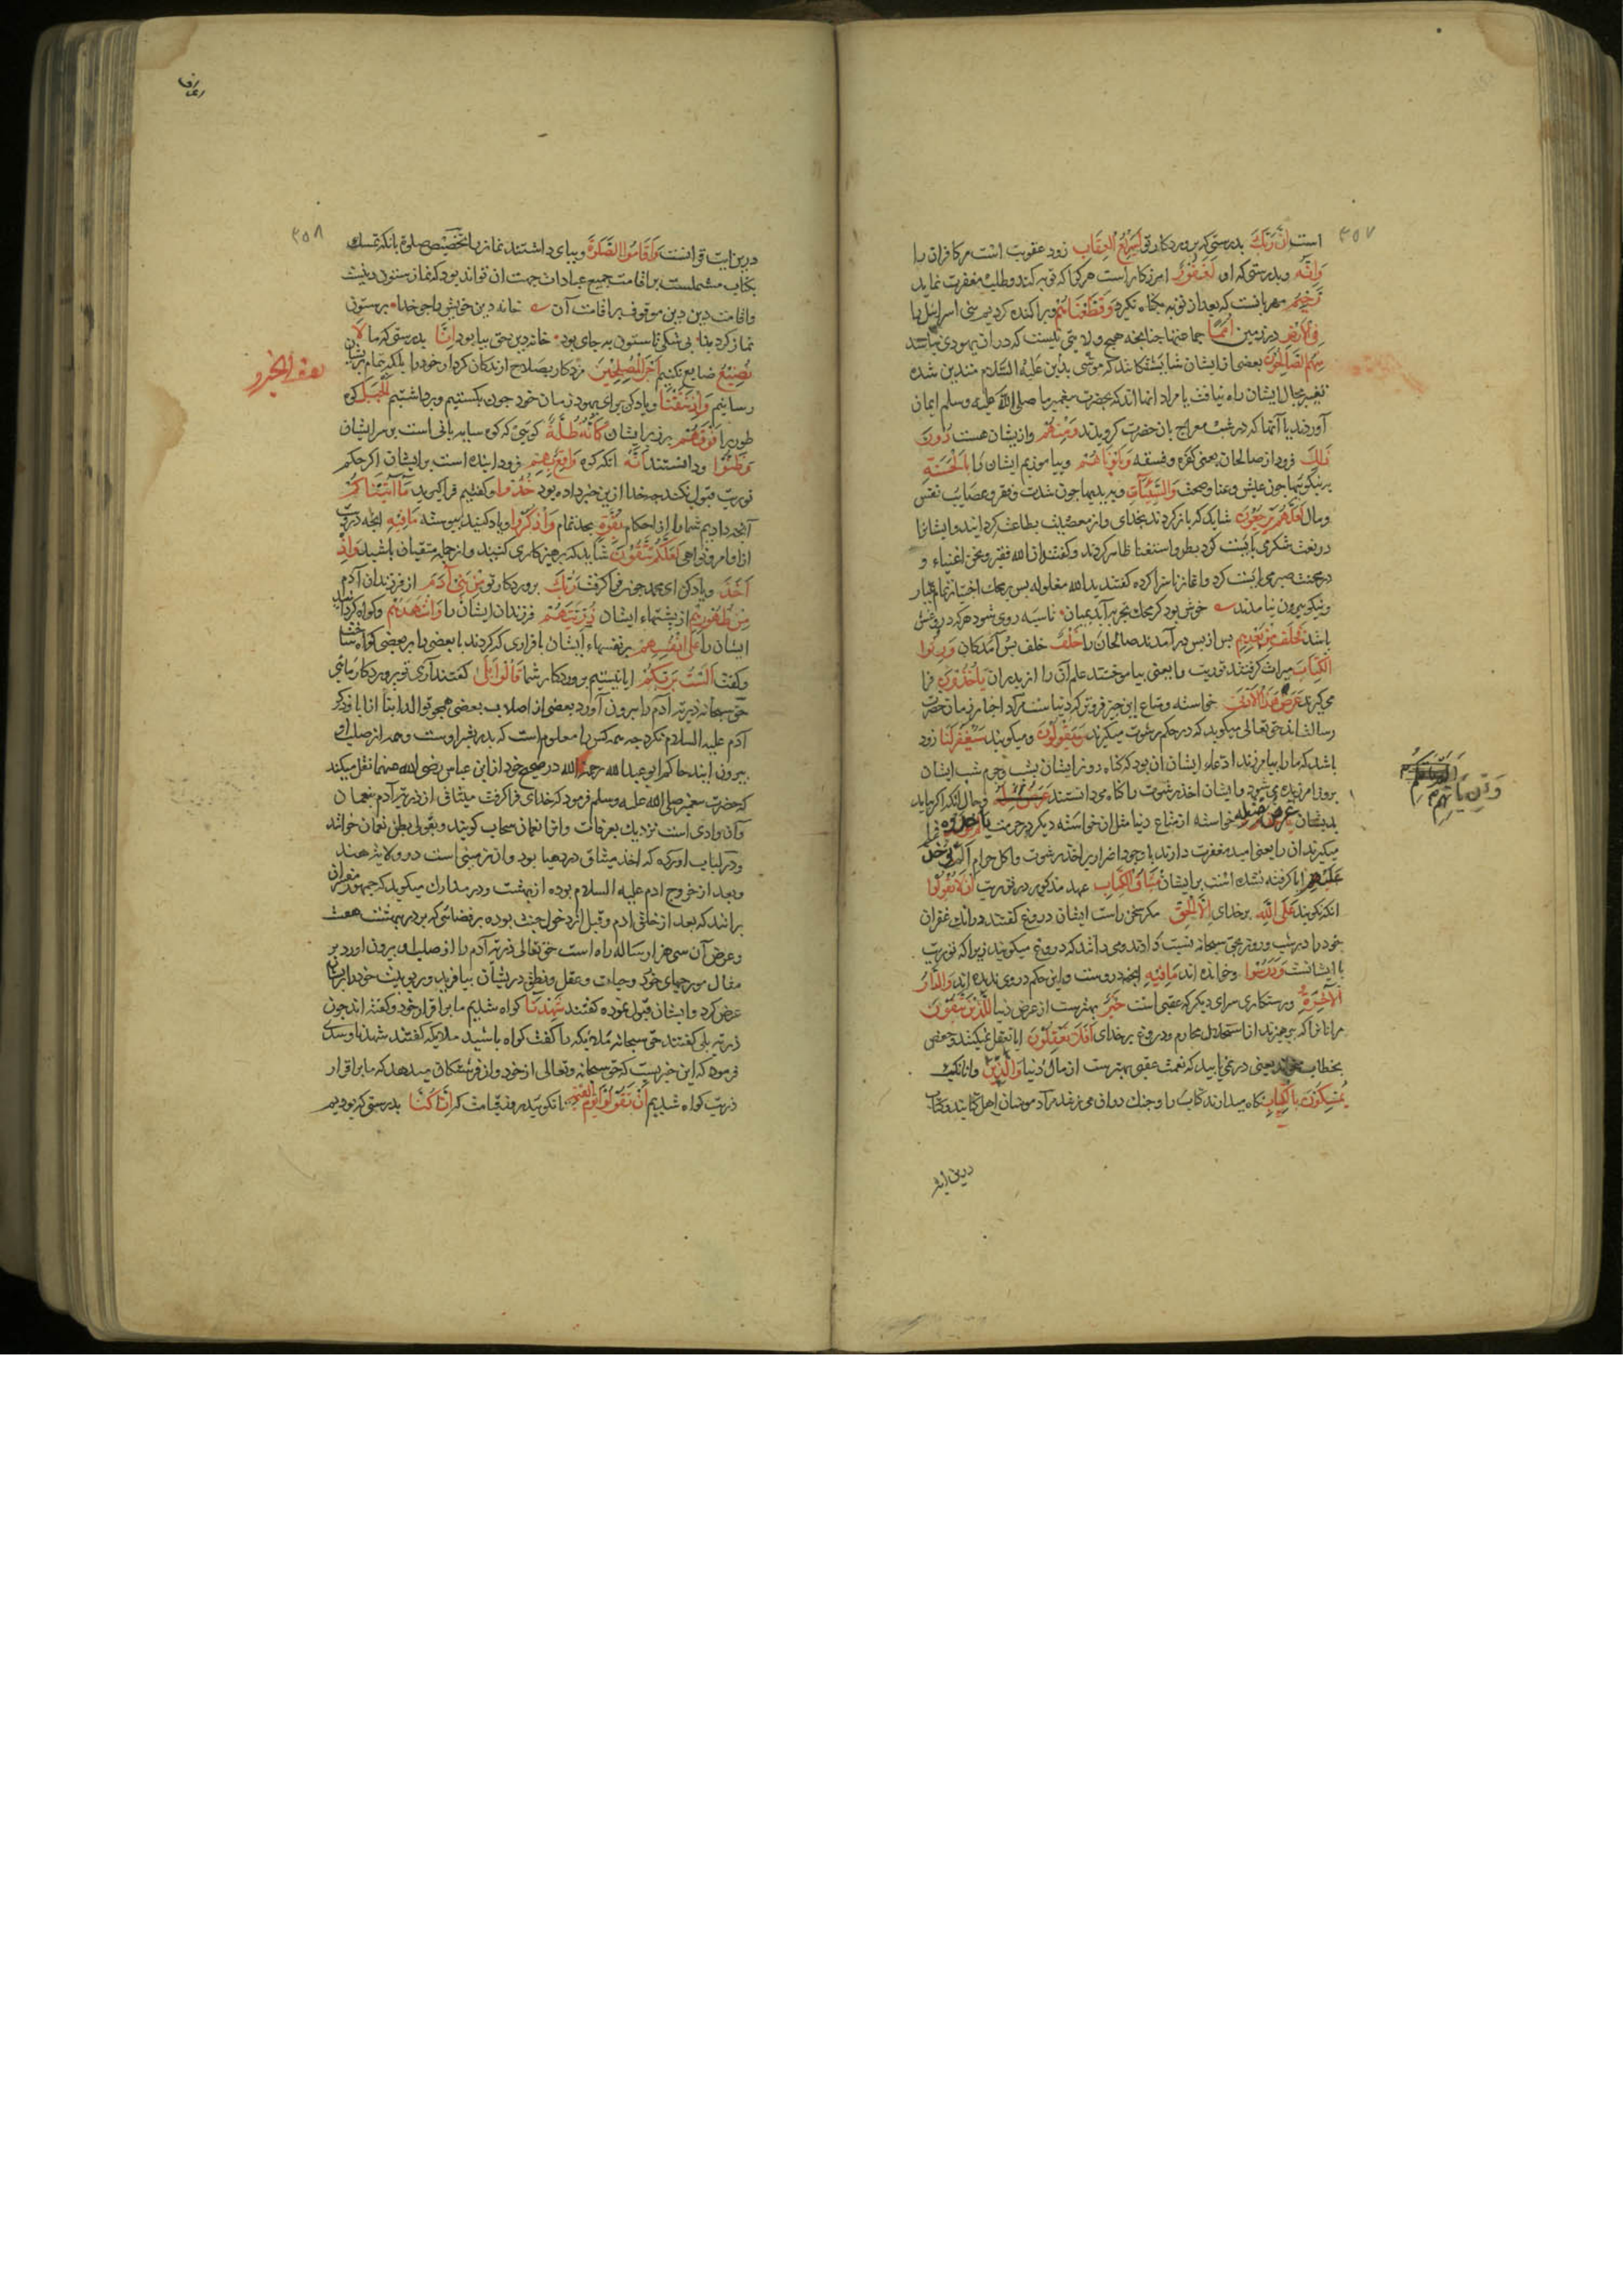 ۳۵۷
است اِنَّ رَبَّكَ بدرستی که پروردکار تو لَسَرِيعُ الْعِقَابِ زود عقوبت است مر کافران را
وَاِنَّهُ و بدرستی که او لَغَفُورٌ امرزکار است هر کرا که توبه کند و طلب مغفرت نماید
رَحِيمٌ مهربانست که بعد از توبه بکناه نکیرد وَقَطَّعْنَاهُمْ و پراکنده کردیم بنی اسرائیل را
فِي الْاَرْضِ در زمین اُمَمًا جماعتها چنانچه هیچ ولایتی نیست که در ان یهودی نباشد
مِنْهُمُ الصَّالِحُونَ بعضی از ایشان شایستکانند که موسی بدین علیه السلام متدین شده
تغییر بحال ایشان راه نیافت یا مراد انها اند که بحضرت پیغمبر ما صلی الله علیه وسلم ایمان
آوردند یا آنها که در شب معراج بان حضرت کرویدند وَمِنْهُمْ و از ایشان هست دُونَ
ذٰلِكَ فرود از صالحان یعنی کفره و فسقه وَبَلَوْنَاهُمْ و بیاموزیم ایشان را بِالْحَسَنَةِ
بنیکوییها چون عیش و غنا و صحت وَالسَّيِّئَاتِ و بدیها چون شدت و فقر و مصایب نفس
و مال لَعَلَّهُمْ يَرْجِعُونَ شاید که بازکردند بخدای و از معصیت بطاعت کرایند و ایشانرا
در نعمت شکر می بایست کرد بطر و استغنا ظاهر کردند و کفتند ان الله فقیر و نحن اغنیاء و
در محنت صبر می بایست کرد و اغاز ناسزا کرده کفتند ید الله مغلوله پس بر محک اختبار تمام عیار
و نیکو بیرون نیامدند خوش بود کر محک تجربه آید بمیان تا سیه روی شود هر که درو غش
باشد فَخَلَفَ مِنْ بَعْدِهِمْ پس از پس درآمدند صالحان را خَلْفٌ خلف پس آمدکان وَرِثُوا
الْكِتَابَ میراث کرفتند توریت را یعنی بیاموختند علم آن را از پدران يَأْخُذُونَ فرا
می کیرند عَرَضَ هٰذَا الْاَدْنٰى خواسته و متاع این چیز فروتر که دنیاست مراد احبار زمان حضرت
رسالتند حق تعالی میکوید که در حکم رشوت میکیرند وَيَقُولُونَ و میکویند سَيُغْفَرُ لَنَا زود
باشد که ما را بیامرزند ادعاء ایشان ان بود که کناه روز ایشان بشب و جرم شب ایشان
بروز امرزیده می شود و ایشان اخذ رشوت را کناه می دانستند و حال انکه اکر بیاید
بدیشان عَرَضٌ مِثْلُهُ خواسته از متاع دنیا مثل ان خواسته دیکر در حرمت يَأْخُذُوهُ فرا
میکیرند ان را یعنی امید مغفرت دارند با وجود اضرار بر اخذ رشوت و اکل حرام اَلَمْ يُؤْخَذْ
عَلَيْهِمْ ایا کرفته نشده است بر ایشان مِيثَاقُ الْكِتَابِ عهد مذکور در توریت اَنْ لَا يَقُولُوا
انکه نکویند عَلَى اللّٰهِ بر خدای اِلَّا الْحَقَّ مکر سخن راست ایشان دروغ کفتند و رانک غفران
خود را در شب و روز بحق سبحانه نسبت دادند و می دانند که دروغ میکویند زیرا که توریت
با ایشانست وَدَرَسُوا و خوانده اند مَا فِيهِ انچه دروست و این حکم درو ندیده اند وَالدَّارُ
الْاٰخِرَةُ و رستکاری سرای دیکر که عقبی است خَيْرٌ بهترست از عرض دنیا لِلَّذِينَ يَتَّقُونَ
مر انانرا که بپرهیزند از استحلال محارم و دروغ بر خدای اَفَلَا تَعْقِلُونَ ایا تعقل نمیکنند و حفص
بخطاب یعنی در نمی یابید که نعمت عقبی بهترست از مال دنیا وَالَّذِينَ و انانکه
يُمَسِّكُونَ بِالْكِتَابِ نکاه میدارند کتاب را و چنک در ان می زنند مراد مومنان اهل کتابند
وَاِنْ يَأْتِهِمْ
درین ایت
اعراف
۳۵۸
درین ایت قرانست وَاَقَامُوا الصَّلٰوةَ و بپای داشتند نماز را تخصیص صلوة بانکه تمسک
بکتاب مشتملست بر اقامت جمیع عبادات جهت ان تواند بود که نماز ستون دینست
و اقامت دین دین موقوف بر اقامت آن خانه دین خویش را چو خدا بر ستون
نماز کرد بنا بی شکی تا ستون به جای بود خانه دین حق بپا بود اِنَّا بدرستی که ما لَا
نُضِيعُ ضایع نکنیم اَجْرَ الْمُصْلِحِينَ مزدکار بصلاح ارندکان کردار خود را بلکه تمام بدیشان
رسانیم وَاِذْ نَتَقْنَا و یاد کن برای یهود زمان خود چون بکستیم و برداشتیم الْجَبَلَ کوه
طور را فَوْقَهُمْ بر زبر ایشان كَاَنَّهُ ظُلَّةٌ کویی که کوه سایه بانی است بر سر ایشان
وَظَنُّوا و دانستند اَنَّهُ انکه کوه وَاقِعٌ بِهِمْ فرود ایند است بر ایشان اکر حکم
توریت قبول نکنند چه خدا ازین خبر داده بود خُذُوا و کفتیم فراکیرید مَا اٰتَيْنَاكُمْ
آنچه دادیم شما را از احکام بِقُوَّةٍ بجد تمام وَاذْكُرُوا و یاد کنید پیوسته مَا فِيهِ انچه دروست
از اوامر و نواهی لَعَلَّكُمْ تَتَّقُونَ شاید که پرهیزکاری کنید و از جمله متقیان باشید وَاِذْ
اَخَذَ و یاد کن ای محمد چون فراکرفت رَبُّكَ پروردکار تو مِنْ بَنِي اٰدَمَ از فرزندان آدم
مِنْ ظُهُورِهِمْ از پشتهاء ایشان ذُرِّيَّتَهُمْ فرزندان ایشان را وَاَشْهَدَهُمْ و کواه کردانید
ایشان را عَلٰى اَنْفُسِهِمْ بر نفسهاء ایشان باقراری که کردند یا بعضی را بر بعضی کواه ساخت
و کفت اَلَسْتُ بِرَبِّكُمْ ایا نیستم پروردکار شما قَالُوا بَلٰى کفتند آری تو پروردکار مائی
حق سبحانه ذریه آدم را بیرون آورد بعضی از اصلاب بعضی همچو توالد ابنا از ابا و ذکر
آدم علیه السلام نکرد چه همه کس را معلوم است که پدر بشر اوست و همه از صلب او
بیرون ایند حاکم ابو عبد الله رحمه الله در صحیح خود از ابن عباس رضی الله عنهما نقل میکند
که حضرت پیغمبر صلی الله علیه وسلم فرمود که خدای فراکرفت میثاق از ذریه آدم بنعمان
و آن وادی است نزدیک بعرفات و انرا نعمان سحاب کویند و بقولی بطن نعمان خوانند
و در لباب اورکه که اخذ میثاق در دهیا بود و ان زمینی است در ولایت هند
و بعد از خروج ادم علیه السلام بوده از بهشت و در مدارک میکوید که جمهور مفسران
برانند که بعد از خلق ادم و قبل از دخول جنت بوده بر فضائی که بر در بهشت هست
و عرض آن سی هزار ساله راه است حق تعالی ذریه آدم را از صلب او بیرون اورد بر
مثال مورچهای خرد و حیات و عقل و نطق در ایشان بیافرید و ربوبیت خود را بایشان
عرض کرد و ایشان قبول نموده کفتند شَهِدْنَا کواه شدیم ما بر اقرار خود و کفته اند چون
ذریه بلی کفتند حق سبحانه ملایکه را کفت کواه باشید ملایکه کفتند شهدنا و سدی
فرمود که این خبریست که حق سبحانه و تعالی از خود و از فرشتکان میدهد که ما بر اقرار
ذریت کواه شدیم اَنْ تَقُولُوا يَوْمَ الْقِيٰمَةِ تا نکویید روز قیامت که اِنَّا كُنَّا بدرستی که بودیم